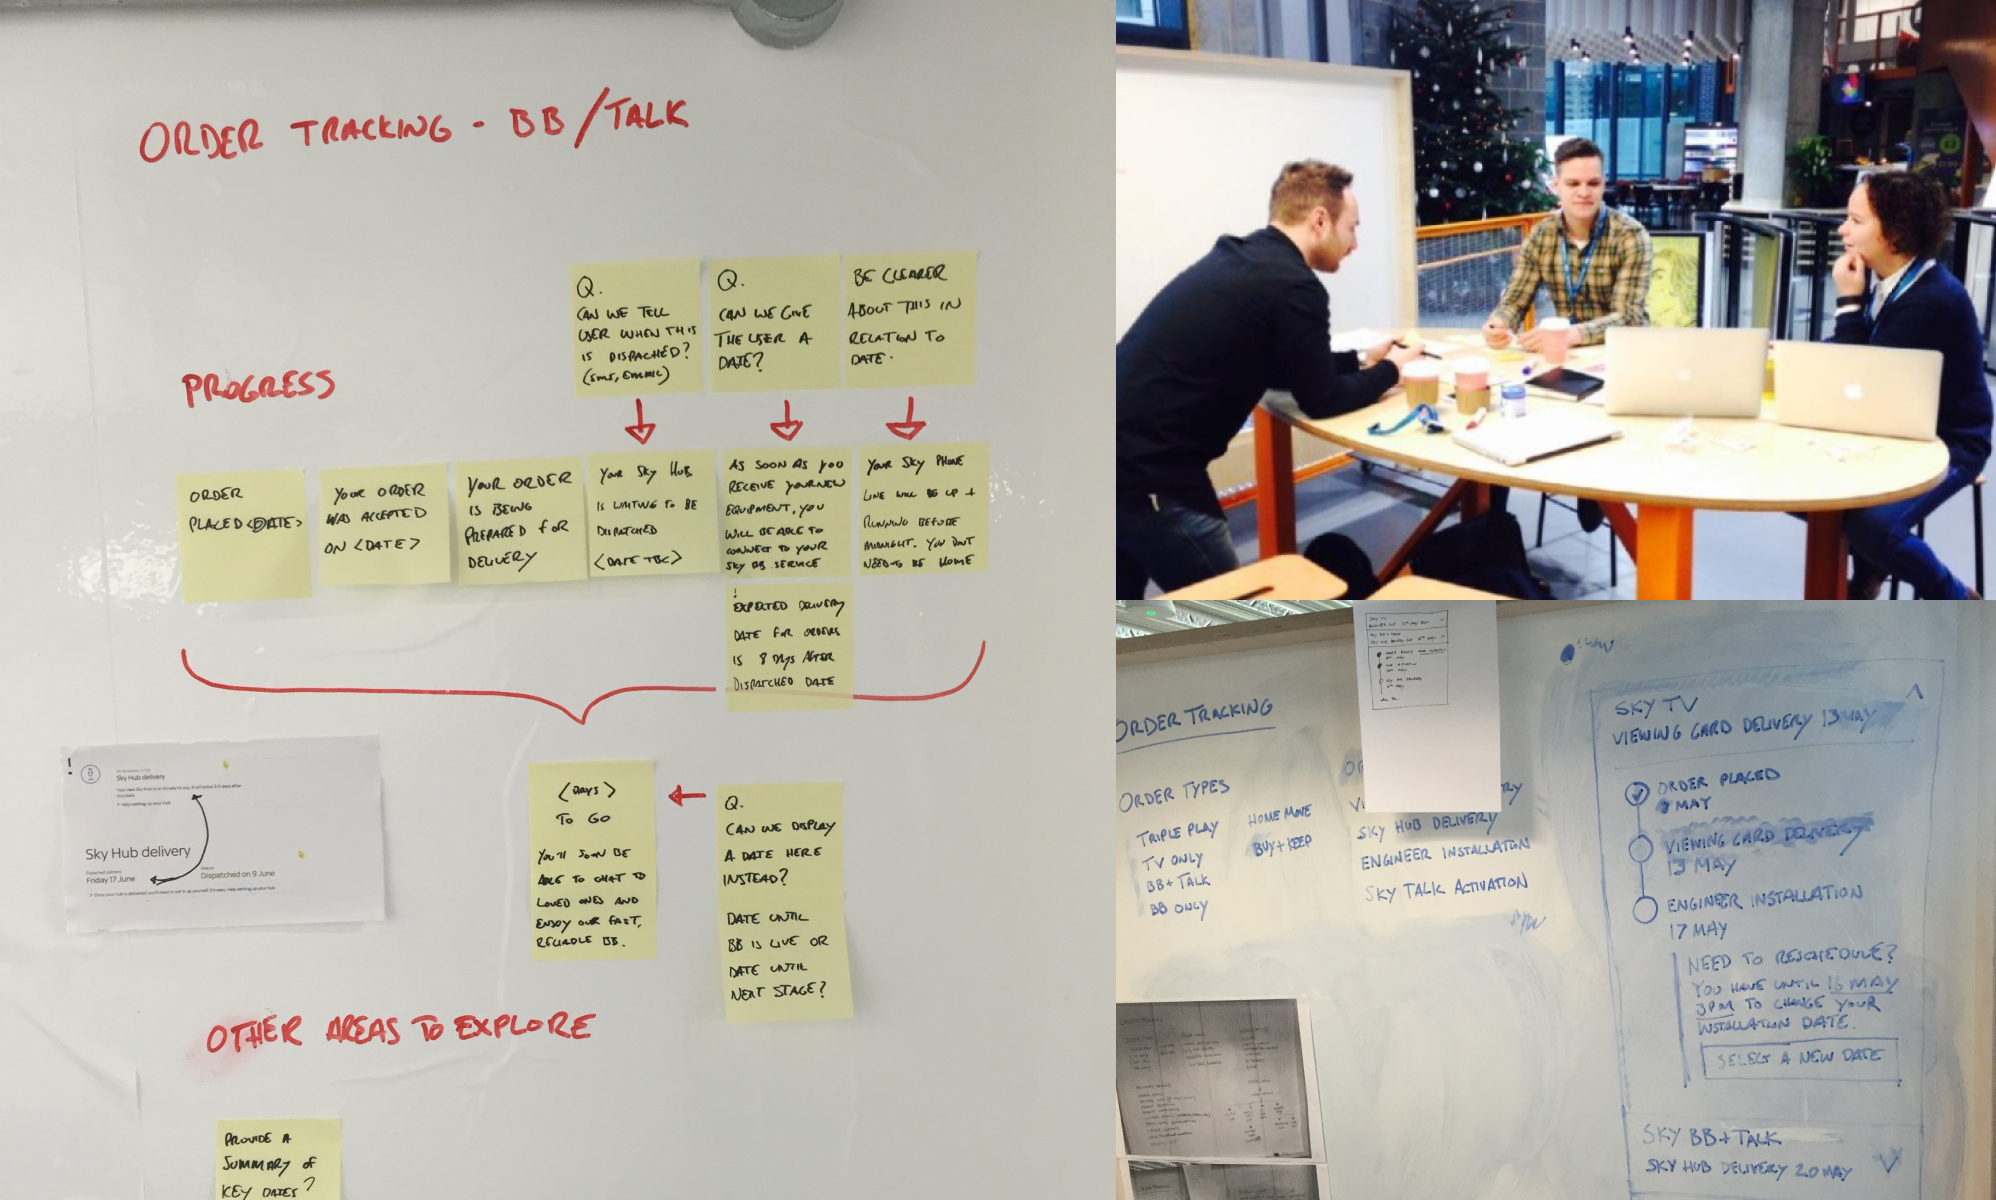 ORDER TRACKING - BB/TALK
Q.
CAN WE TELL
USER WHEN THIS
IS DISPACHED?
(SMS, EMAIL)
Q.
CAN WE GIVE
THE USER A
DATE?
BE CLEARER
ABOUT THIS IN
RELATION TO
DATE.
PROGRESS
ORDER
PLACED <DATE>
YOUR ORDER
WAS ACCEPTED
ON <DATE>
YOUR ORDER
IS BEING
PREPARED FOR
DELIVERY
YOUR SKY HUB
IS WAITING TO BE
DISPATCHED
<DATE TBC>
AS SOON AS YOU
RECEIVE YOUR NEW
EQUIPMENT, YOU
WILL BE ABLE TO
CONNECT TO YOUR
SKY BB SERVICE
YOUR SKY PHONE
LINE WILL BE UP +
RUNNING BEFORE
MIDNIGHT. YOU DON'T
NEED TO BE HOME
!
EXPECTED DELIVERY
DATE FOR ORDERS
IS 8 DAYS AFTER
DISPATCHED DATE
!
17
Sky Hub delivery
Sky Hub delivery
Expected delivery
Friday 17 June
Status
Dispatched on 9 June
<DAYS>
TO GO
YOU'LL SOON BE
ABLE TO CHAT TO
LOVED ONES AND
ENJOY OUR FAST,
RELIABLE BB.
Q.
CAN WE DISPLAY
A DATE HERE
INSTEAD?
DATE UNTIL
BB IS LIVE OR
DATE UNTIL
NEXT STAGE?
OTHER AREAS TO EXPLORE
PROVIDE A
SUMMARY OF
KEY DATES?
ORDER TRACKING
ORDER TYPES
TRIPLE PLAY
TV ONLY
BB + TALK
BB ONLY
HOME MOVE
BUY + KEEP
SKY HUB DELIVERY
ENGINEER INSTALLATION
SKY TALK ACTIVATION
SKY TV
VIEWING CARD DELIVERY 13 MAY
ORDER PLACED
MAY
VIEWING CARD DELIVERY
13 MAY
ENGINEER INSTALLATION
17 MAY
NEED TO RESCHEDULE?
YOU HAVE UNTIL 16 MAY
3PM TO CHANGE YOUR
INSTALLATION DATE.
SELECT A NEW DATE
SKY BB + TALK
SKY HUB DELIVERY 20 MAY